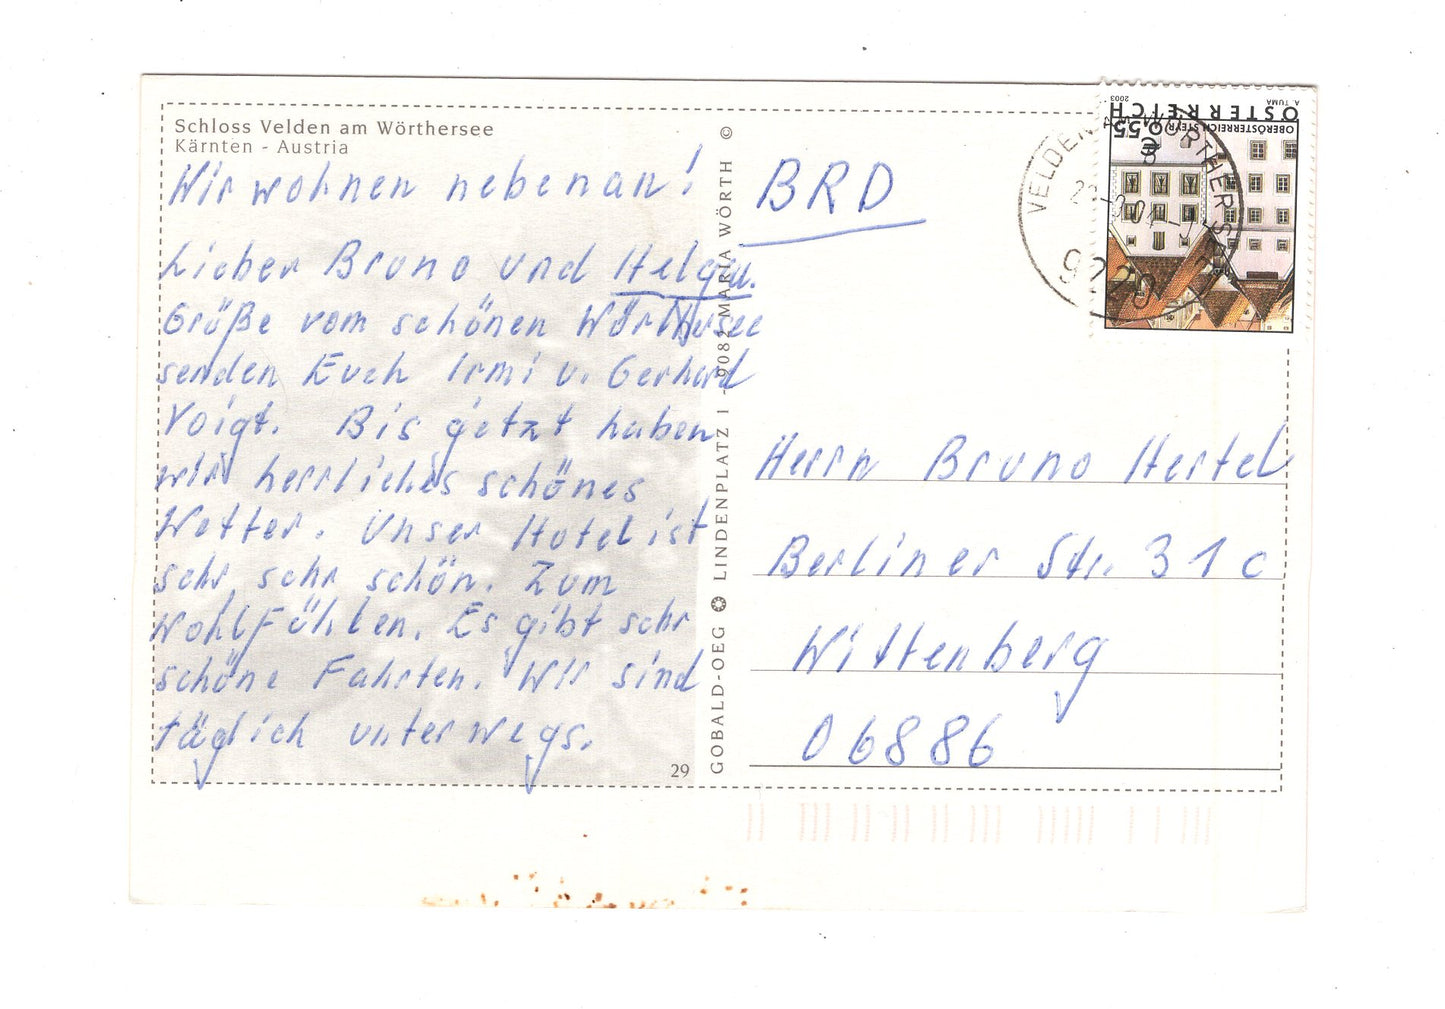 Schloss Velden am Wörthersee
Kärnten - Austria
Wir wohnen nebenan!
Lieber Bruno und Helga.
Grüße vom schönen Wörthersee
senden Euch Irmi u. Gerhard
Voigt. Bis getzt haben
wir herrliches schönes
Wetter. Unser Hotel ist
sehr, sehr schön. Zum
Wohlfühlen. Es gibt sehr
schöne Fahrten. Wir sind
täglich unterwegs.
29
GOBALD-OEG LINDENPLATZ 1 - 9082 MARIA WÖRTH ©
BRD
Herrn Bruno Hertel
Berliner Str. 31 c
Wittenberg
06886
VELDEN AM WÖRTHER SEE
9220
ÖSTERREICH
A. TUMA
2003
OBERÖSTERREICH STEYR
€ 0,55